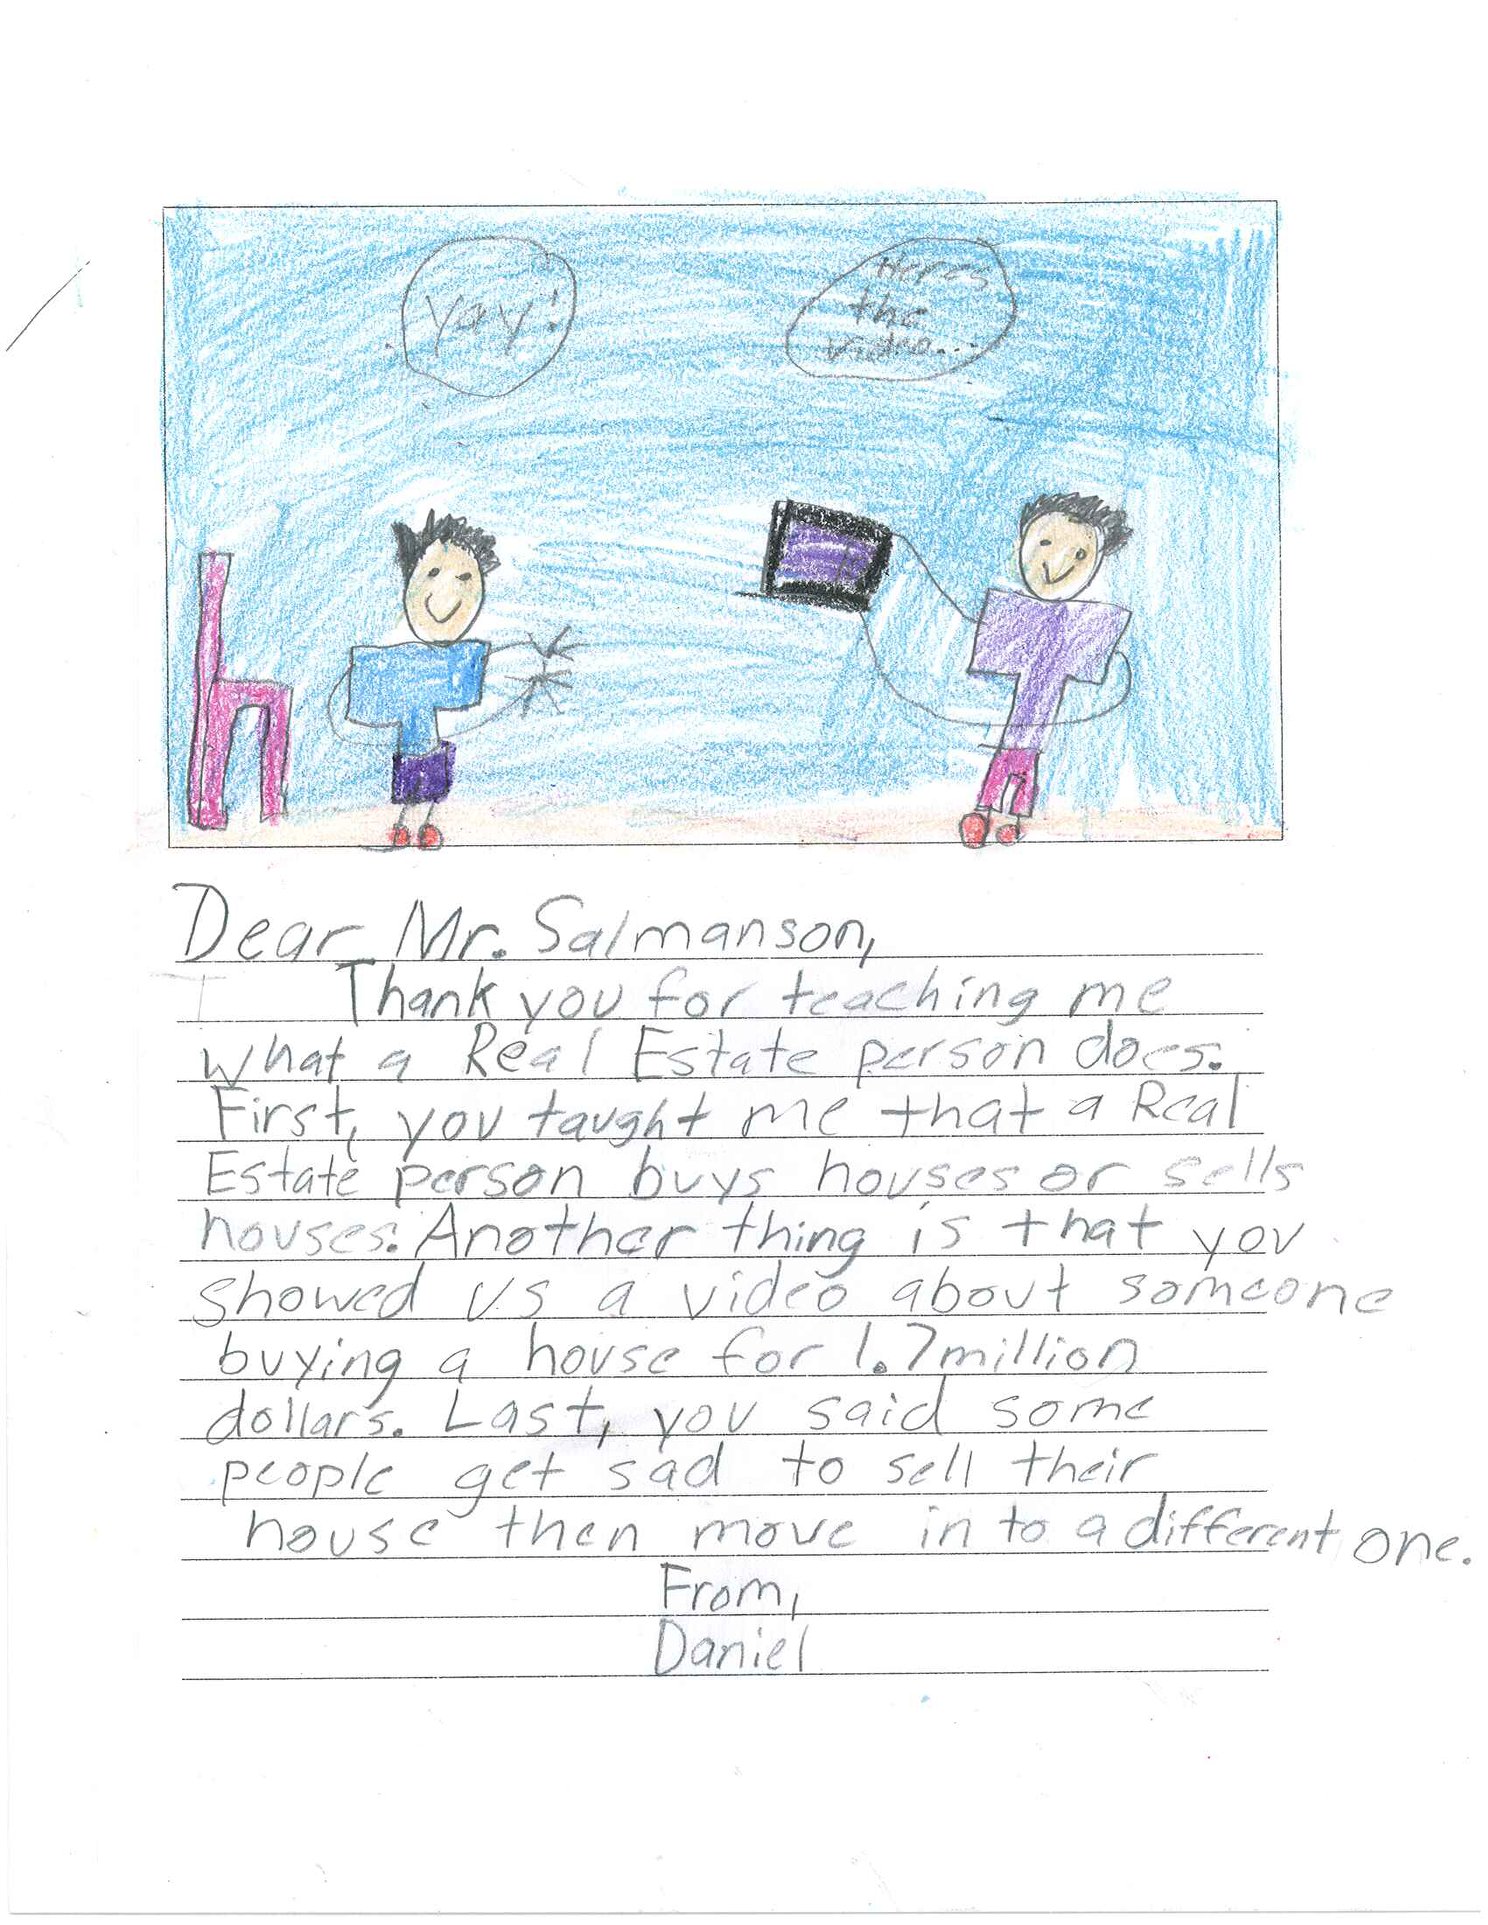 Yay!
Heres
the
video...
Dear Mr. Salmanson,
Thank you for teaching me
what a Real Estate person does.
First, you taught me that a Real
Estate person buys houses or sells
houses. Another thing is that you
showed us a video about someone
buying a house for 1.7million
dollars. Last, you said some
people get sad to sell their
house then move in to a different one.
From,
Daniel